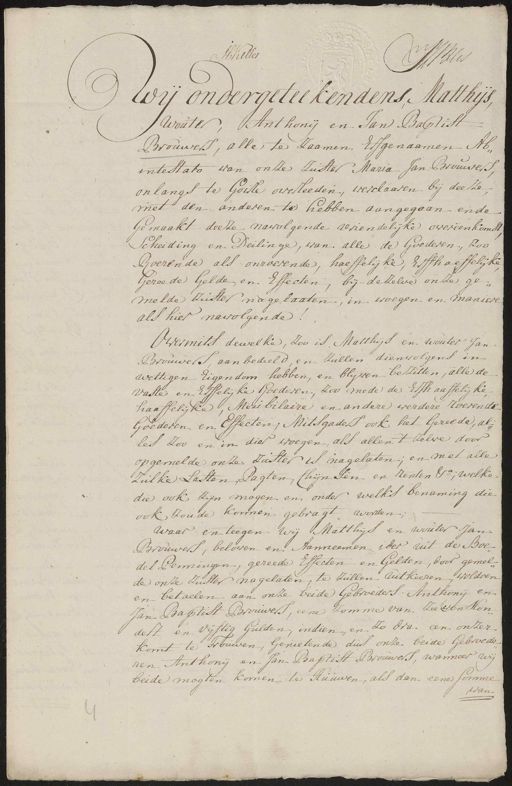 Wij ondergeteekendens, Matthijs,
Wouter, Anthonij en Jan Baptist
Brouwers, alle te zaamen Erfgenaamen Ab„
intestato van onze zuster Maria Jan Brouwers,
onlangs te Goirle overleeden, verclaaren bij deeze
met den anderen te hebben aangegaan ende
Gemaakt deeze navolgende vriendelijke overeenkomst,
Scheiding en Deilinge, van alle de Goederen, zoo
Roerende als onroerende, haeffelijke, Erffhaeffelijke
Gereede Gelde en Effecten, bij dezelve onze ge„
melde zuster nagelaaten, in voegen en maniere
als hier navolgende!
Overmits dewelke, zoo is Matthijs en Wouter Jan
Brouwers, aanbedeeld, en zullen dienvolgens in
wettigen Eigendom hebben, en blijven bezitten, alle de
vaste en Erffelijke Goederen, zoo mede de Erffhaaffelijke,
haaffelijke, Meubilaire en andere verdere Roerende
Goederen en Effecten, Mitsgaders ook het Gereede, al„
les zoo en in dier voegen als allent zelve door
opgemelde onze zuster is nagelaten; en met alle
zulke Lasten, Pagten, Chijnsen en Renten &c, welke
die ook zijn mogen en onder welke benaming die
ook zoude komen gebragt worden;
Waar en teegen Wij Matthijs en Wouter Jan
Brouwers, beloven en Aanneemen ider uit de Boe„
del Penningen, gereede Effecten en Gelden, door gemel„
de onze zuster nagelaten, te zullen uitkeeren, voldoen
en betaelen aan onze beide Gebroeders Anthonij en
Jan Baptist Brouwers, eene Somme van
en vijftig Gulden, indien en zo dra een onzer
komt te Trouwen, Genietende dus onze beide Gebroede„
ren Anthonij en Jan Baptist Brouwers, wanneer wij
beide mogten komen te Huuwen, als dan eene somme
van
4